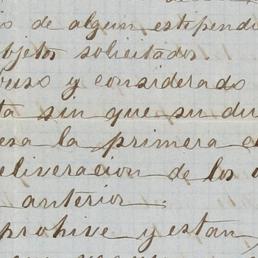 s de algun estipendi
objetos solicitados.
buso y considerado
ta sin que su du
esa la primera
eliveracion de los
anterior.
prohive y estan